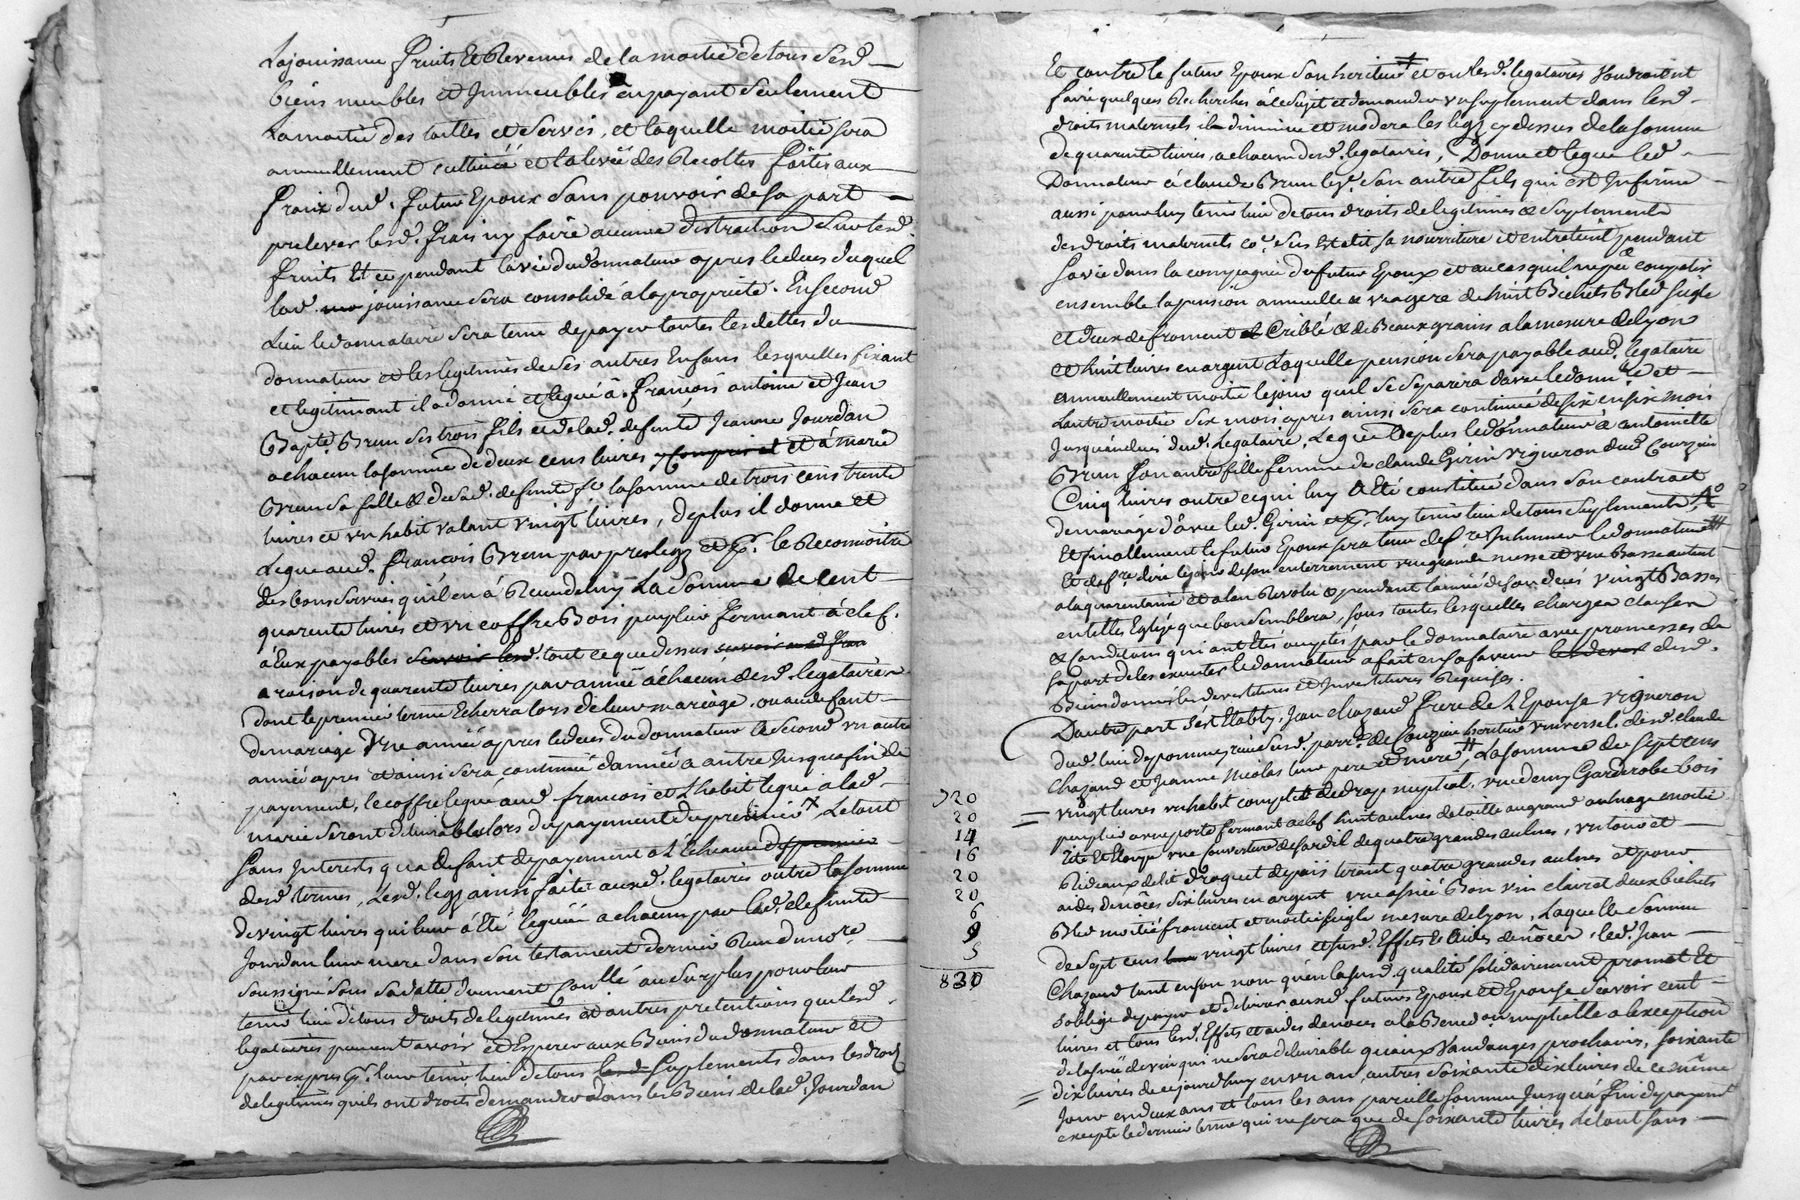 La jouissance fruits et Revenus de la moitié de tous sesd.
biens meubles et Immeubles en payant seulement
la moitié des tailles et servis, et laquelle moitié sera
annuellement cultivée et la levée des Recoltes faites aux
fraix dud. futur Epoux sans pouvoir de sa part
prelever lesd. frais ny faire aucune distraction sur lesd.
fruits Et ce pendant la vie du donnateur apres le deces duquel
lad. jouissance sera consolidé a la propriété. En second
Lieu le donnataire sera tenu de payer toutes les dettes du
donnateur et les legitimes de ses autres Enfans lesquelles fixant
et legitimant il a donné et legué à françois antoine et Jean
Bapte. Brun ses trois fils et de lad. defunte Jeanne Jourdan
a chacun la somme de deux cens livres y compris et et à marie
Brun sa fille & de sad. defunte fe. la somme de trois cens trente
livres et un habit valant vingt livres, de plus il donne et
Legue aud. françois Brun par prelegs et pr. le Reconnoitre
des bons services qu'il en à Receu de luy La somme de cent
quarente livres et un coffre Bois peuplier fermant à clef.
à Eux payables scavoir lesd. tout ce que dessus
a raison de quarente livres par année à chacun desd. legataires
dont le premier terme Echerra lors de leur mariage, ou au defaut
de mariage Une année apres le deces du donnateur le second un autre
année apres et ainsi sera continué d'année a autre Jusqua fin de
payement, le coffre legué aud. francois et L'habit legué a lad.
marie seront delivrables lors du payement du premier, Le tout
sans Interests qu'a defaut de payement a L'Echeance du premier
desd. termes, Lesd. legs ainsi faits auxd. legataires outre la somme
de vingt livres qui leur à été leguée a chacun par lad. defunte
Jourdan leur mere dans son testament dernier Receu du nore.
soussigné sous sa datte duement Conllé au surplus pour leur
tenir lieu de tous droits de legitimes et autres pretentions que lesd.
legataires peuvent avoir et Esperer aux Biens du donnateur et
par expres pr. leur tenir lieu de tous Suplements dans les droits
de legitimes quils ont droits demander dans les Biens de lad. Jourdan
Et contre le futur Epoux son heritier et ou lesd. legataires Voudroint
faire quelques Recherches à ce sujet et demander un suplement dans lesd.
droits maternels il diminue et modere les legs cy dessus de la somme
de quarente livres, a chacun desd. legataires, Donne et legue led.
Donnateur à claude Brun son autre fils qui est Infirme
aussi pour luy tenir lieu de tous droits de legitimes & Suplements
des droits maternels sa nourriture et entretient pendant
sa vie dans la compagnie du futur Epoux et au cas qu'il ne peut compatir
ensemble la pension annuelle & viagere de huit Bichets Bled seigle
et deux de froment Criblé & de Beaux grains a la mesure de Lyon
et huit livres en argent Laquelle pension sera payable aud. legataire
annuellement moitie le jour qu'il se separera d'avec le donnre. et
L'autre moitié six mois apres ainsi sera continué de six en six mois
Jusqu'au deces dud. Legataire, Legue De plus le donnateur à antoinette
Brun son autre fille femme de claude Gerin vigneron dud. Couzon
Cinq livres outre ce qui luy à Eté constitué dans son contract
de mariage d'avec led. Gerin et pr. luy tenir lieu de tous Suplements
Et finallement le futur Epoux sera tenu de fre. Inhumer le donnateur
Et de fre. dire le jour de son enterrement une grande messe et une Basse autant
a la quarentaine et a l'an Revolu & pendant l'année de son deces vingt Basses
en telles Eglise que bon semblera, sous toutes lesquelles charges clauses
& conditions qui ont étés acceptés par le donnataire avec promesses de
sa part de les executer le donnateur a fait en sa faveur desd.
Biens donnés les devestitures et Investitures Requises.
D'autre part s'est Etably Jean chazaud frere de L'Epouse vigneron
heritier universel desd. claude
chazaud et Jeanne Nicolas leur pere et mere, La somme de sept cens
vingt livres un habit complet de drap nuptial, une demy Garderobe bois
peuplier avec porte fermant a clef huit aulnes de toille au grand aulnage moitié
une couverture de quatre grandes aulnes, un tour et
Rideaux de lit quatre grandes aulnes et pour
aides de nôces six livres en argent une asnée Bon vin clairet deux bichets
Bled moitié froment et moitié seigle mesure de Lyon, Laquelle somme
de sept cens vingt livres et susd. Effets & aides de nôces, led. Jean
Chazaud tant en son nom qu'en la susd. qualité solidairement promet Et
s'oblige de payer et delivrer auxd. futurs Epoux et Epouse scavoir cent
livres et tous lesd. Effets et aides de noces a la Benediction nuptialle a l'exception
de l'asnée de vin qui ne sera delivrable qu'aux Vandanges prochain, soixante
dix livres de ce jourd'huy en un an, autres soixante dix livres de ce même
Jour en deux ans et tous les ans pareille somme Jusqu'à fin de payement
excepté le dernier terme qui ne sera que de soixante livres Le tout sans
720
20
14
16
20
20
6
9
5
830